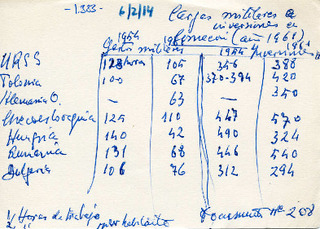 - 1.333 -
6/2/14 Cargas militares e
inversiones en
Comecon (año 1961)
Gastos militares Inversiones
1954 196 1954 1961
URSS 128 horas 105 356 388
Polonia 100 67 370-394 420
Alemania O. — 63 — 350
Checoeslovaquia 125 110 447 570
Hungría 140 42 490 324
Rumania 131 68 446 540
Bulgaria 106 76 312 294
1/ Horas de trabajo
por habitante
Documento nº 208